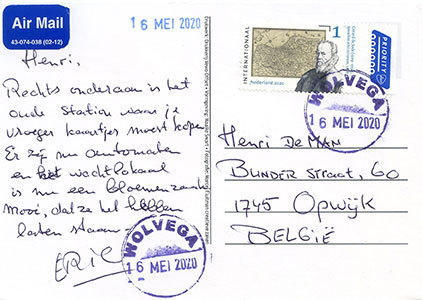 Air Mail
43-074-038 (02-12)
16 MEI 2020
Henri,
Rechts onderaan is het
oude station waar je
vroeger kaartjes moest kopen
Er zijn nu automaten
en het wachtlokaal
is nu een bloemenzaak
Mooi, dat ze het hebben
laten staan.
ERIC
WOLVEGA
16 MEI 2020
INTERNATIONAAL
1
Nederland 2020
PRIORITY
WOLVEGA
16 MEI 2020
Henri De MAN
BUNDER STRAAT, 60
1745 OPWIJK
BELGIË